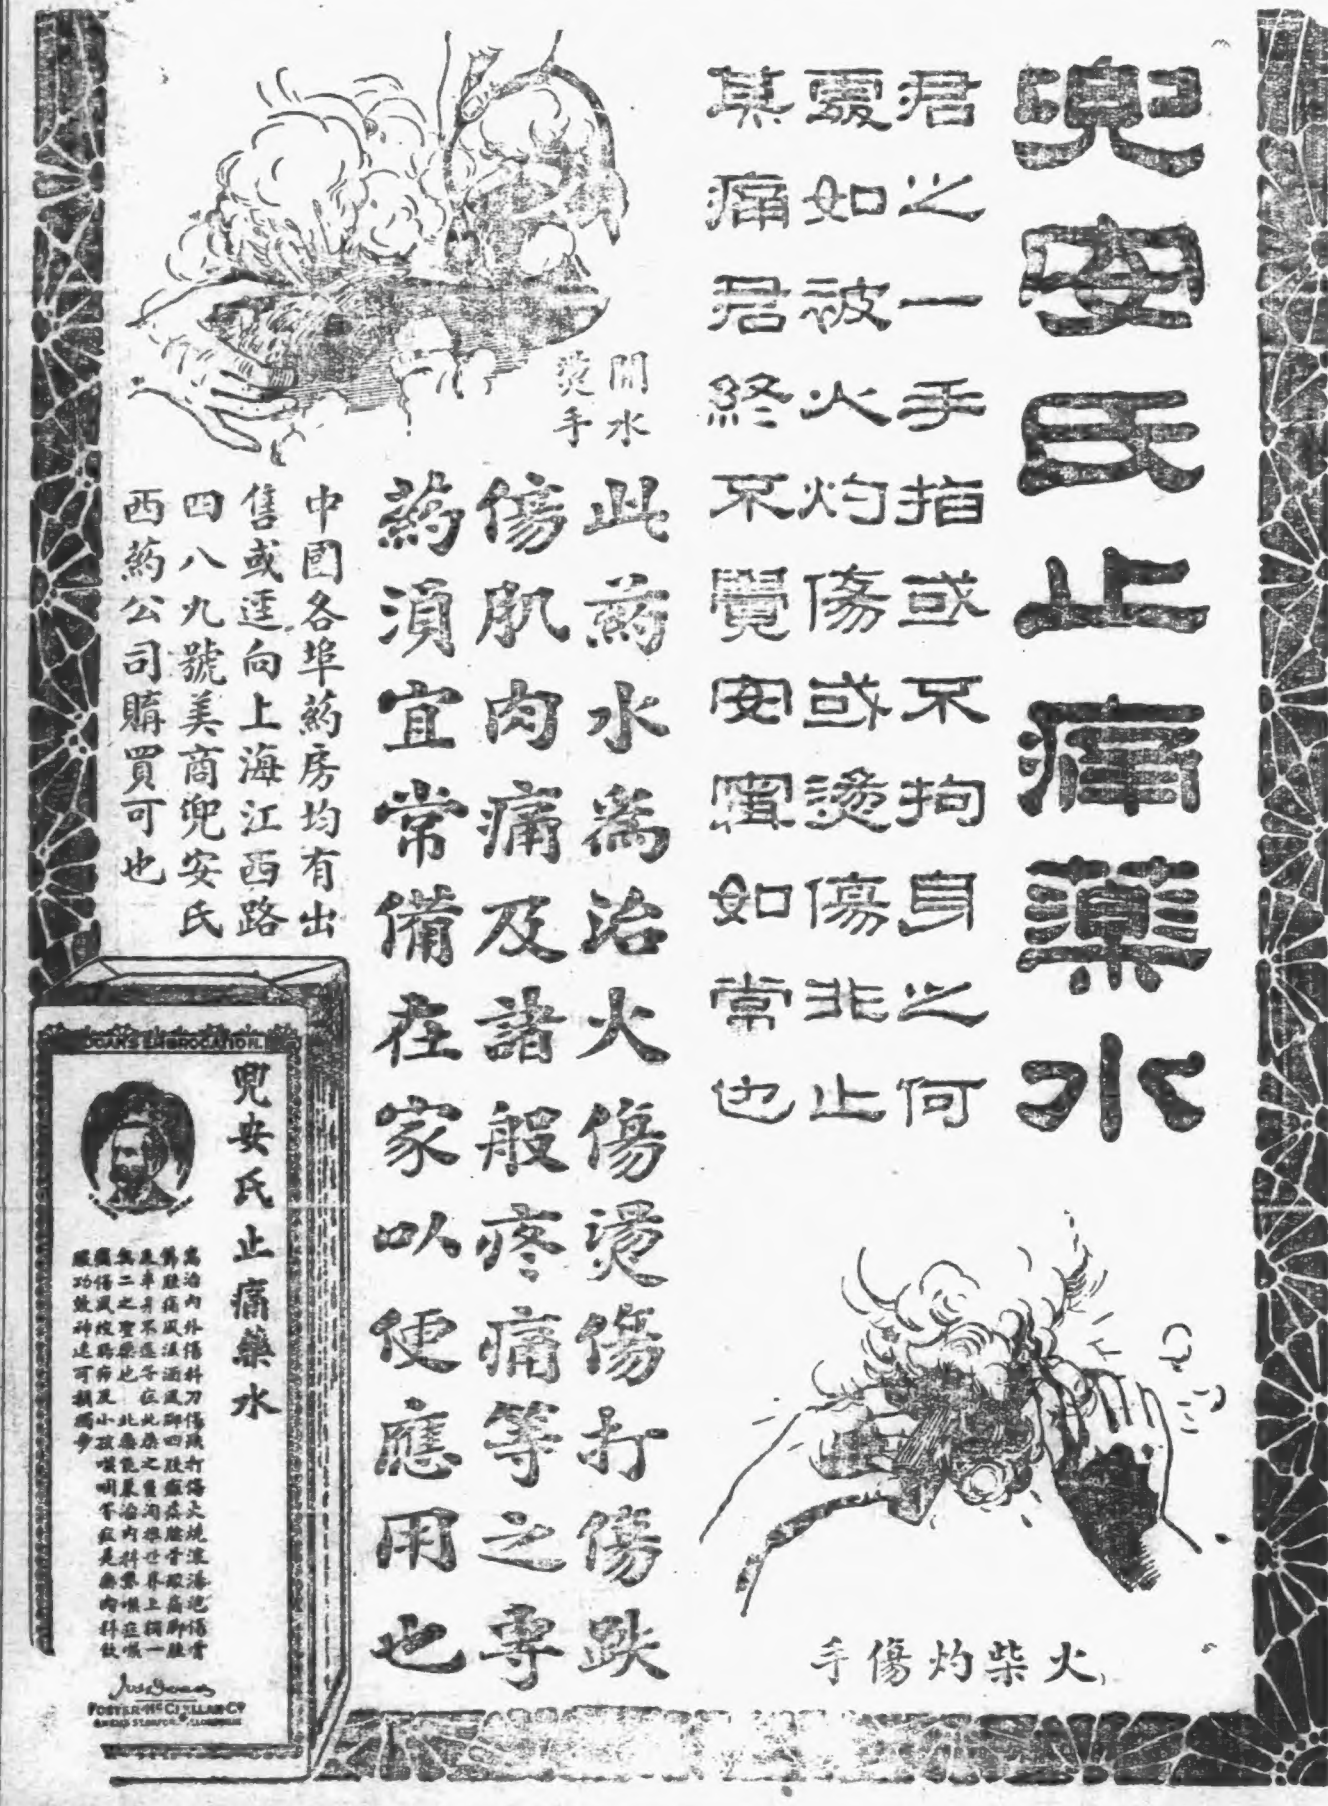 兜安氏止痛藥水
君之一手指或不拘身之何
處如被火灼傷或燙傷非止
其痛君終不覺安寧如常也
火柴灼傷手
開水
燙手
此藥水為治火傷燙傷打傷跌
傷肌肉痛及諸般疼痛等之專
藥須宜常備在家以便應用也
中國各埠葯房均有出
售或逕向上海江西路
四八九號美商兜安氏
西葯公司購買可也
DOAN'S EMBROCATION.
兜安氏止痛藥水
FOSTER-McCLELLAN Co